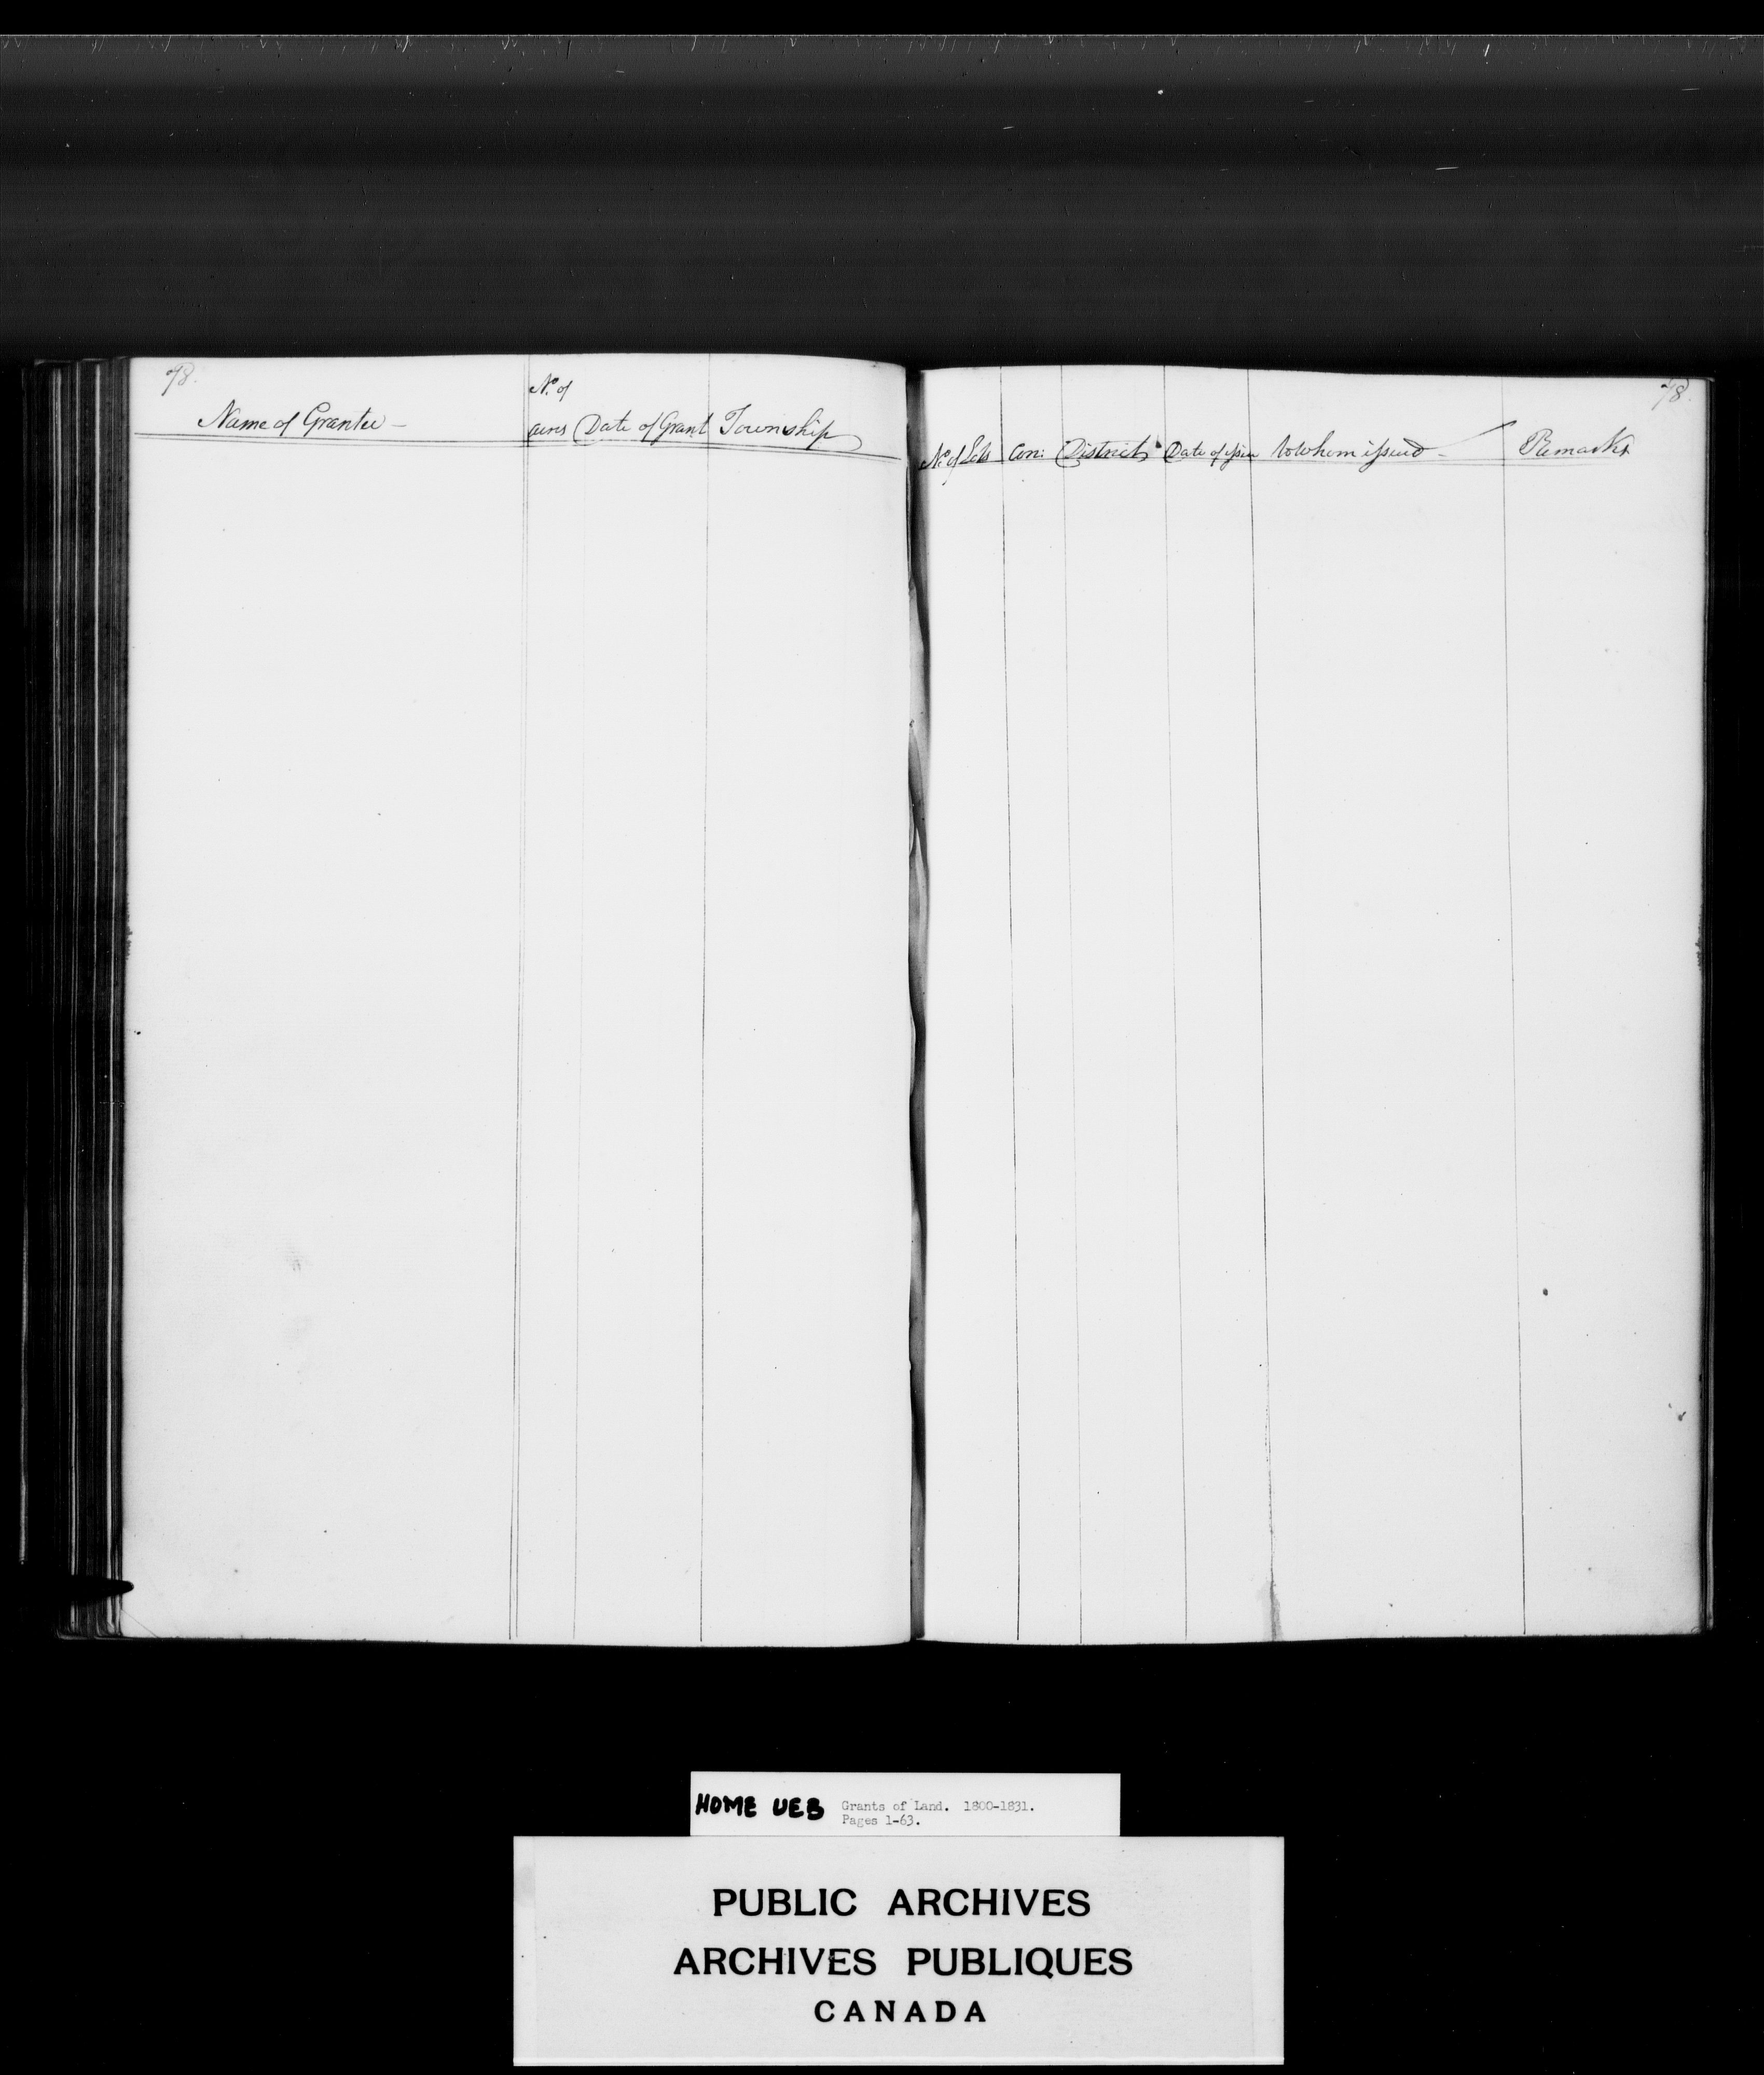 78.
No. of
Name of Grantee - acres Date of Grant Township
78.
No. of Lots Con: District Date of issue to whom issued - Remarks
HOME UEB Grants of Land. 1800-1831.
Pages 1-63.
PUBLIC ARCHIVES
ARCHIVES PUBLIQUES
CANADA